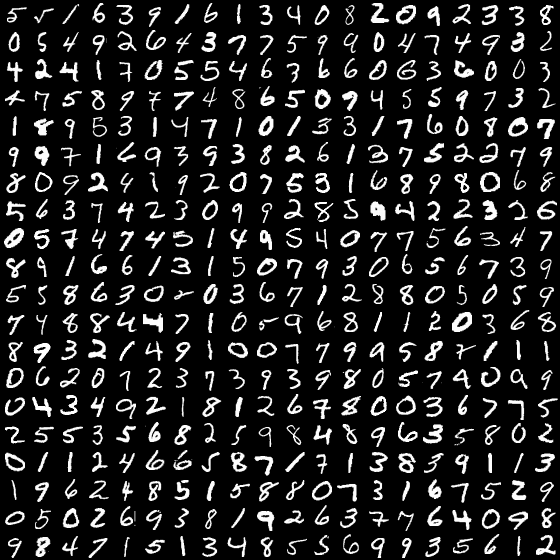 5 5 1 6 3 9 1 6 1 3 4 0 8 2 0 9 2 3 3 8
0 5 4 9 2 6 4 3 7 7 5 9 9 0 4 7 4 9 3 2
4 2 4 1 7 0 5 5 4 6 3 6 6 0 6 3 6 0 0 3
4 7 5 8 9 7 7 4 8 6 5 0 9 4 5 5 9 7 3 2
1 8 9 5 3 1 4 7 1 0 1 3 3 1 7 6 0 8 0 7
9 9 7 1 6 9 3 9 3 8 2 6 1 3 7 5 2 2 7 9
8 0 9 2 9 1 9 2 0 7 5 3 1 6 8 9 8 0 6 8
5 6 3 7 4 2 3 0 9 9 2 8 5 9 4 2 2 3 2 6
0 5 7 4 7 4 5 1 4 9 5 4 0 7 7 5 6 3 4 7
8 9 1 6 6 1 3 1 5 0 7 9 3 0 6 5 6 7 3 9
5 5 8 6 3 0 0 3 6 7 1 2 8 8 0 5 0 5 9
7 4 8 8 4 4 7 1 0 5 9 6 8 1 1 2 0 3 6 8
8 9 3 2 1 4 9 1 0 0 7 7 9 9 5 8 7 1 1 1
0 6 2 0 7 2 3 7 3 9 3 9 8 0 5 7 9 0 9 9
0 4 3 4 9 2 1 8 1 2 6 7 8 0 0 3 6 7 7 5
2 5 5 3 5 6 8 2 5 9 8 4 8 9 6 3 5 8 0 2
0 1 1 2 4 6 6 5 8 7 1 7 1 3 8 3 9 1 1 3
1 9 6 2 4 8 5 1 5 8 8 0 7 3 1 6 7 5 2 9
0 5 0 2 6 9 3 8 1 9 2 6 3 7 7 6 4 0 9 8
9 8 4 7 1 5 1 3 4 8 5 5 6 9 9 3 5 6 1 2